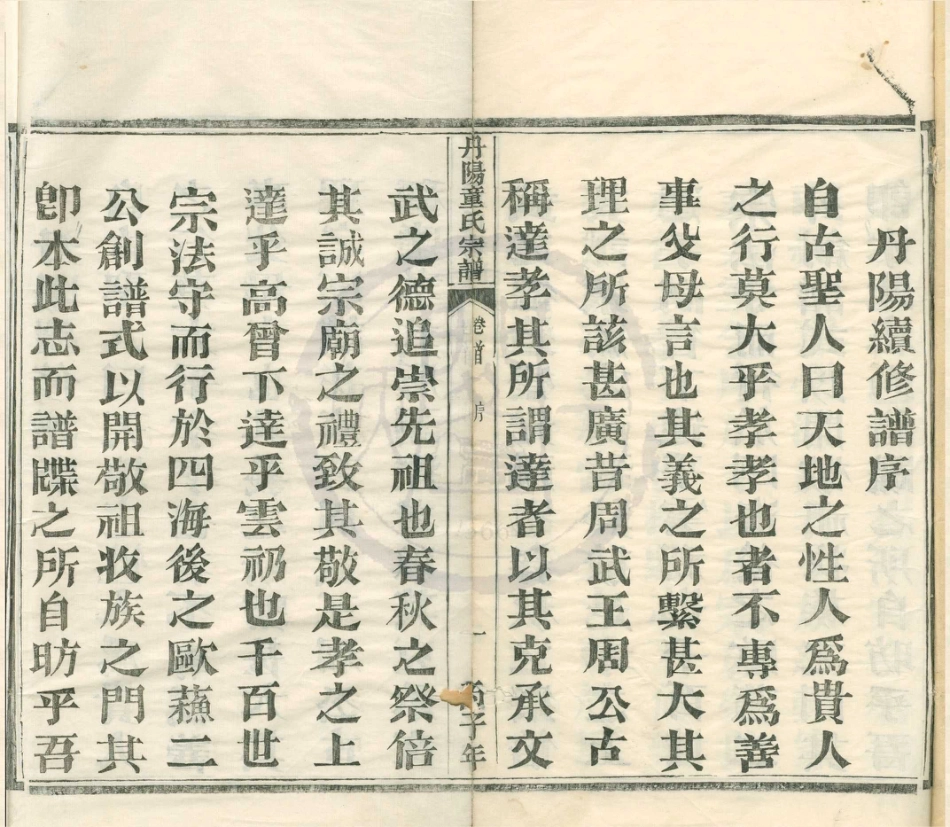 丹陽續修譜序
自古聖人曰天地之性人爲貴人
之行莫大乎孝孝也者不專爲善
事父母言也其義之所繫甚大其
理之所該甚廣昔周武王周公古
稱達孝其所謂達者以其克承文
丹陽童氏宗譜
卷首
序
一
丙子年
武之德追崇先祖也春秋之祭倍
其誠宗廟之禮致其敬是孝之上
達乎高曾下逹乎雲礽也千百世
宗法守而行於四海後之歐蘓二
公創譜式以開敬祖收族之門其
卽本此志而譜牒之所自昉乎吾